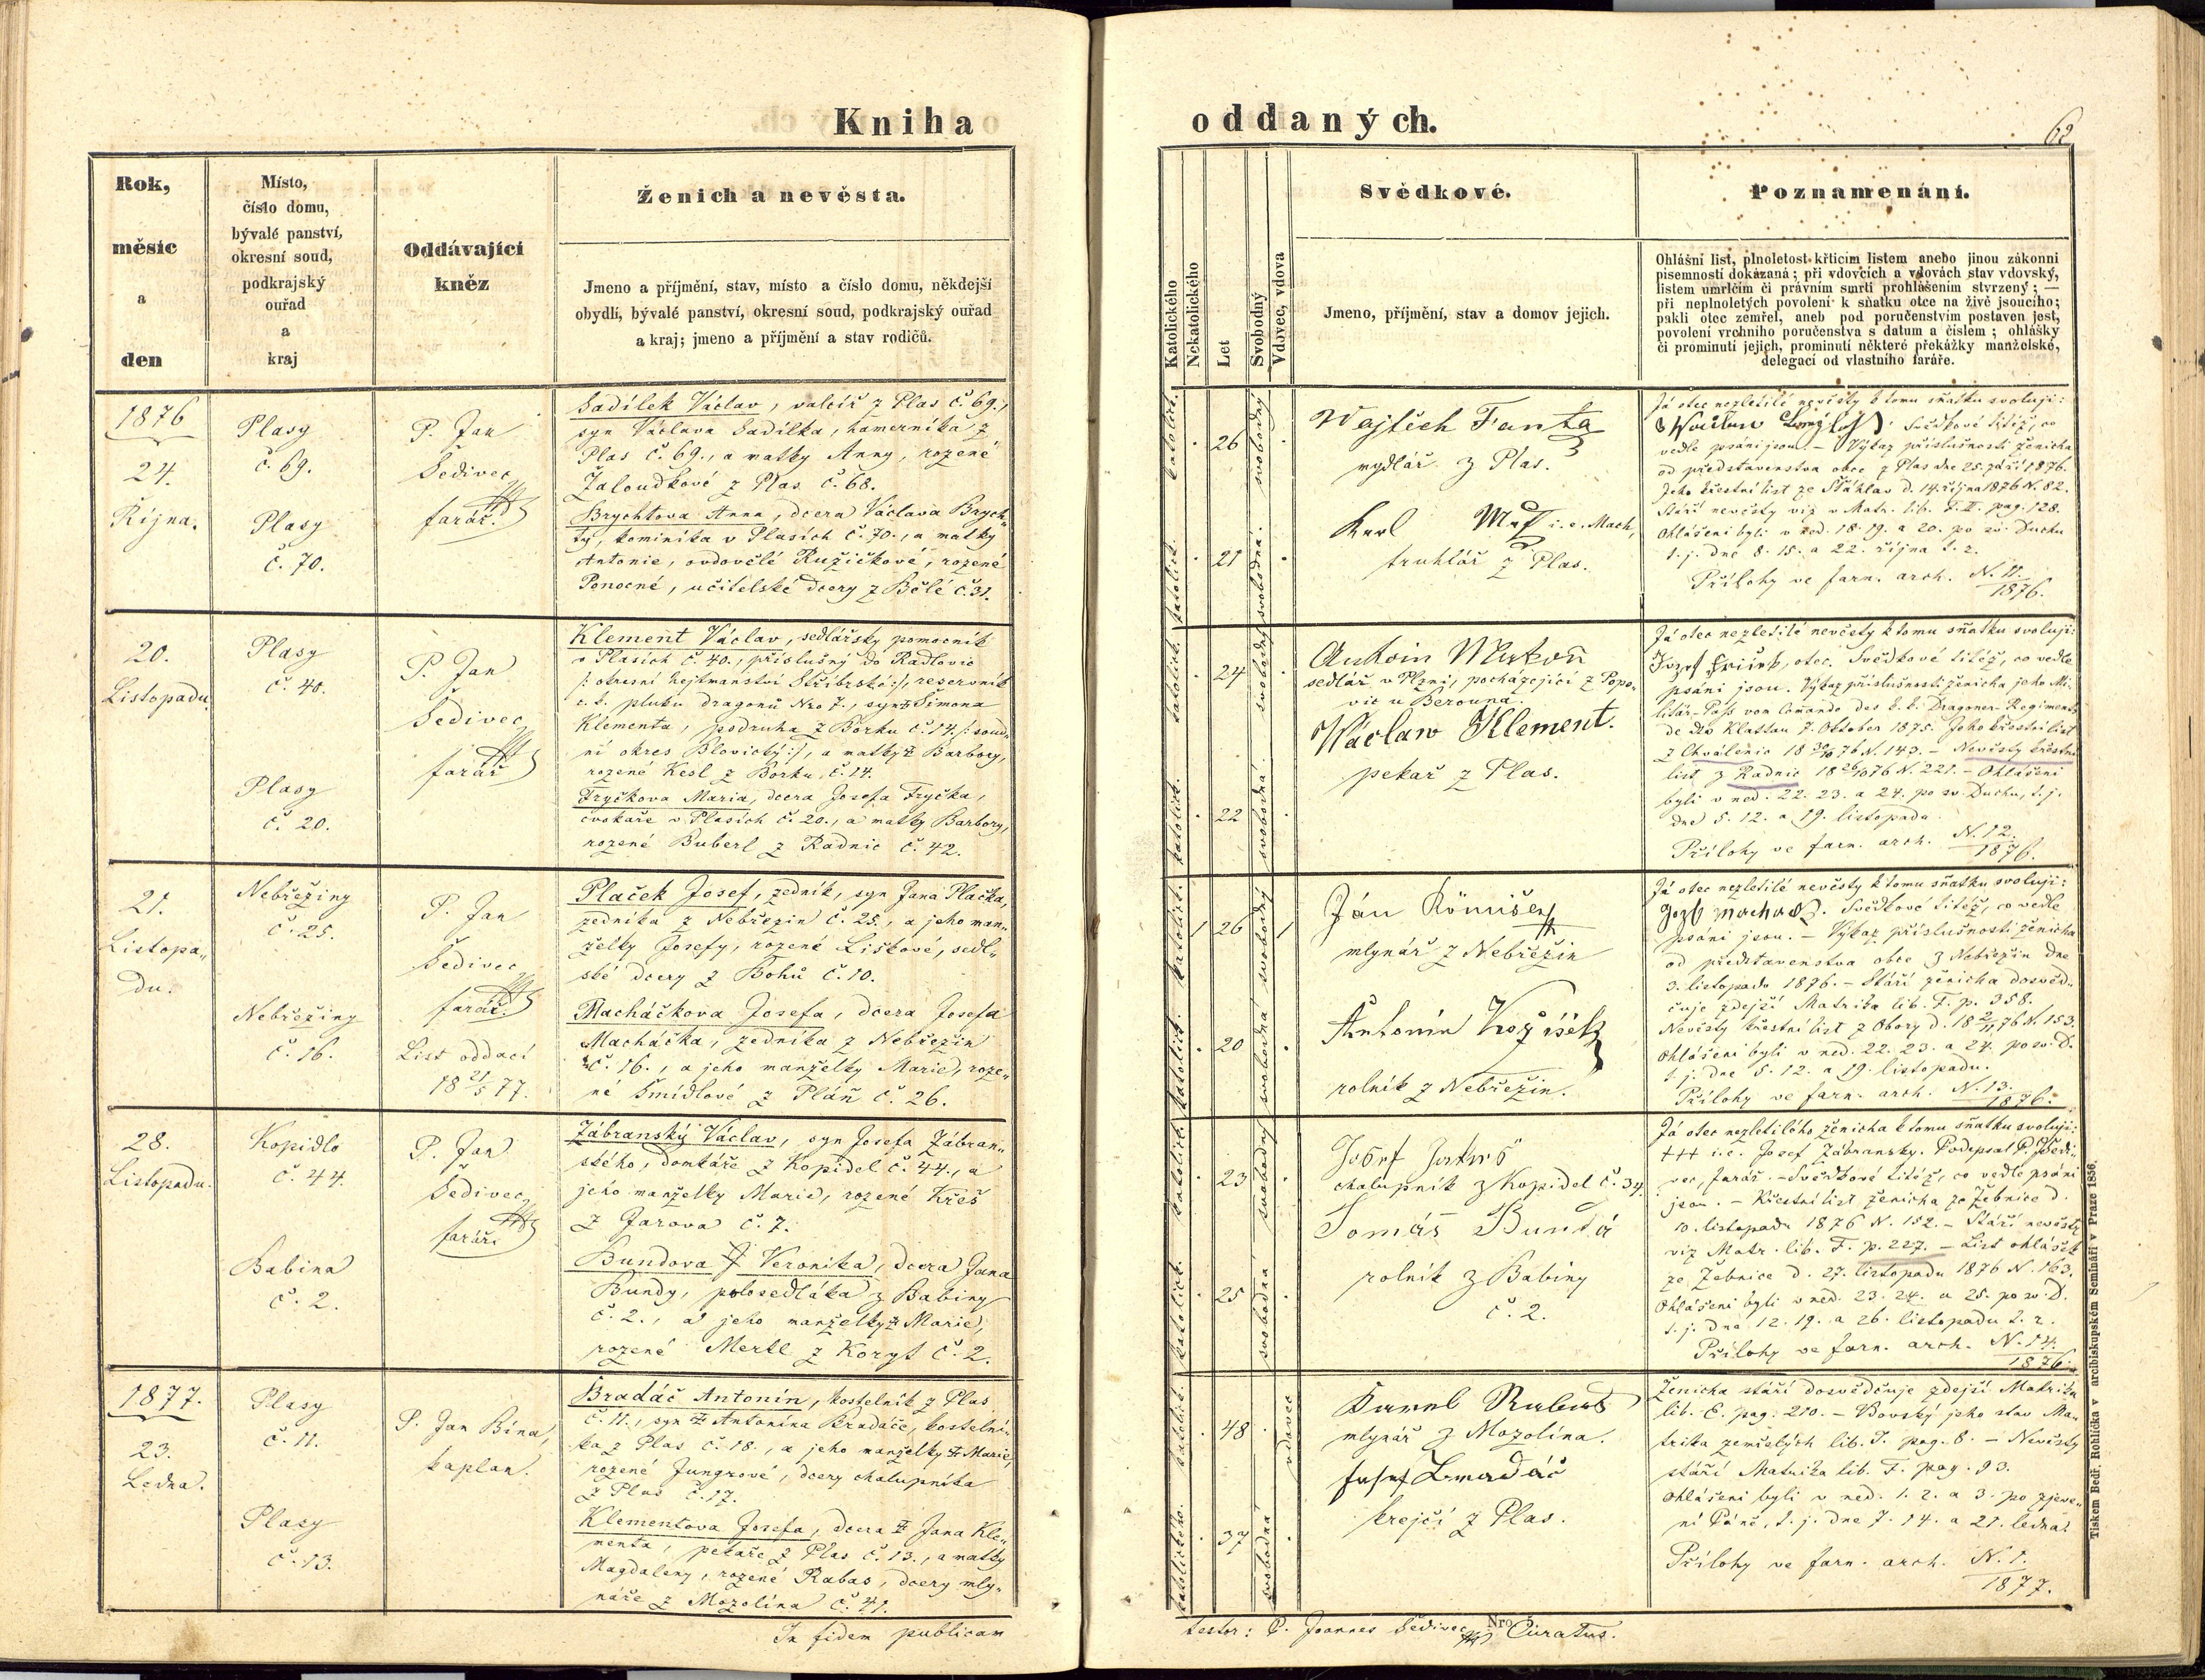 Kniha
Rok,
měsíc
a
den
Místo,
číslo domu,
bývalé panství,
okresní soud,
podkrajský
ouřad
a
kraj
Oddávající
kněz
Ženich a nevěsta.
Jmeno a příjmění, stav, místo a číslo domu, někdejší
obydlí, bývalé panství, okresní soud, podkrajský ouřad
a kraj; jmeno a příjmění a stav rodičů.
1876
24.
Října.
Plasy
č. 69.
Plasy
č. 70.
P. Jan
Šedivec
farář.
Sadílek Václav, valcíř z Plas č. 69.,
syn Václava Sadílka, hamerníka z
Plas č. 69., a matky Anny, rozené
Žaloudkové z Plas č. 68.
Brychtova Anna, dcera Václava Brych„
ty, kominíka v Plasích č. 70., a matky
Antonie, ovdovělé Ružičkové, rozené
Ponocné, učitelské dcery z Bělé č. 31.
20.
Listopadu.
Plasy
č. 40.
Plasy
č. 20.
P. Jan
Šedivec
farář
Klement Václav, sedlářsky pomocník
v Plasích č. 40., příslušný do Radlovic
/: okresní hejtmanství Stříbrské :/, reservník
c. k. pluku dragonů Nro 7., syn Šimona
Klementa, podruha z Borku č. 14. /: soud„
ní okres Blovický :/, a matky Barbory,
rozené Kesl z Borku č. 14.
Fryčkova Maria, dcera Josefa Fryčka,
cvokaře v Plasích č. 20., a matky Barbory,
rozené Buberl z Radnic č. 42.
21.
Listopa„
du.
Nebřeziny
č. 25.
Nebřeziny
č. 16.
P. Jan
Šedivec
farář.
List oddací
18 21/5 77.
Plaček Josef, zedník, syn Jana Plačka,
zedníka z Nebřezin č. 25., a jeho man„
želky Josefy, rozené Liškové, sedl„
ské dcery z Bohů č. 10.
Macháčkova Josefa, dcera Josefa
Macháčka, zedníka z Nebřezin
č. 16., a jeho manželky Marie, roze„
né Šmídlové z Pláň č. 26.
28.
Listopadu.
Kopidlo
č. 44.
Babina
č. 2.
P. Jan
Šedivec
farář.
Zábranský Václav, syn Josefa Zábran„
ského, domkáře z Kopidel č. 44., a
jeho manželky Marie, rozené Kreš
z Jarova č. 7.
Bundova Veronika, dcera Jana
Bundy, polosedláka z Babiny
č. 2., a jeho manželky Marie,
rozené Mertl z Koryt č. 2.
1877.
23.
Ledna.
Plasy
č. 11.
Plasy
č. 13.
P. Jan Bína,
kaplan.
Bradáč Antonín, kostelník z Plas
č. 11., syn Antonína Bradáče, kostelní„
ka z Plas č. 18., a jeho manželky Marie,
rozené Jungrové, dcery chalupníka
z Plas č. 17.
Klementova Josefa, dcera Jana Kle„
menta, pekaře z Plas č. 13., a matky
Magdaleny, rozené Rabas, dcery mly„
náře z Mozolína č. 41.
In fidem publicam
oddaných.
62
Katolického
Nekatolického
Let
Svobodný
Vdovec, vdova
Svědkové.
Jmeno, příjmění, stav a domov jejich.
Poznamenání.
Ohlášní list, plnoletost křticím listem anebo jinou zákonní
písemností dokázaná; při vdovcích a vdovách stav vdovský,
listem umrlčím či právním smrti prohlášením stvrzený; —
při neplnoletých povolení k sňatku otce na živě jsoucího;
pakli otec zemřel, aneb pod poručenstvím postaven jest,
povolení vrchního poručenstva s datum a číslem; ohlášky
či prominutí jejich, prominutí některé překážky manželské,
delegací od vlastního faráře.
katolict.
26
svobodný
katolict.
21
svobodna.
Wojtěch Fanta
mydlář z Plas.
Karl i. e. Mach,
truhlář z Plas.
Já otec nezletilé nevěsty k tomu sňatku svoluji:
Svědkové titéž, co
vedle psáni jsou. – Výkaz příslušnosti ženicha
od představenstva obce z Plas dne 25. září 1876.
Jeho křestní list ze Šťáhlav d. 14. října 1876 N. 82.
Stáří nevěsty viz v Matr. lib. F. II. pag. 128.
Ohlášeni byli v ned. 18. 19. a 20. po sv. Duchu
t. j. dne 8. 15. a 22. října t. r.
Přílohy ve farn. arch. N. 11.
1876.
katolict.
24
svobodný
katolict.
22
svobodná.
sedlář v Plzni, pocházející z Popo„
vic u Berouna.
Waclaw Klement.
pekař z Plas.
Já otec nezletilé nevěsty k tomu sňatku svoluji:
otec. Svědkové titéž, co vedle
psáni jsou. Výkaz příslušnosti ženicha jeho Mi„
litär-Paß vom Comando des k. k. Dragoner-Regiments
de dto Klattau 7. Oktober 1875. Jeho křestní list
z Chválenic 18 30/10 76 N. 143. – Nevěsty křestní
list z Radnic 18 26/10 76 N. 221. – Ohlášeni
byli v ned. 22. 23. a 24. po sv. Duchu, t. j.
dne 5. 12. a 19. listopadu.
Přílohy ve farn. arch. N. 12.
1876.
katolict.
26
svobodný
katolict.
20
svobodna
Ján
mlynář z Nebřezin
Antonín
rolník z Nebřezin.
Já otec nezletilé nevěsty k tomu sňatku svoluji:
Svědkové titéž, co vedle
psáni jsou. – Výkaz příslušnosti ženicha
od představenstva obce z Nebřezin dne
3. listopadu 1876. – Stáří ženicha dosvěd„
čuje zdejší Matrika lib. F. p. 358.
Nevěsty křestní list z Obory d. 18 2/11 76 N. 153.
Ohlášeni byli v ned. 22. 23. a 24. po sv. D.
t. j. dne 5. 12. a 19. listopadu.
Přílohy ve farn. arch. N. 13.
1876.
katolict.
23
svobodný
katolict.
25
svobodna
Josef
chalupník z Kopidel č. 34.
Tomáš Bunda
rolník z Babiny
č. 2.
Já otec nezletilého ženicha k tomu sňatku svoluji:
+++ i. e. Josef Zábransky. Podepsal P. J. Šedi„
vec, farář. – Svědkové titéž, co vedle psáni
jsou. – Křestní list ženicha ze Žebnice d.
10. listopadu 1876 N. 152. – Stáří nevěsty
viz Matr. lib. F. p. 227. – List ohlášek
ze Žebnice d. 27. listopadu 1876 N. 163.
Ohlášeni byli v ned. 23. 24. a 25. po sv. D.
t. j. dne 12. 19. a 26. listopadu t. r.
Přílohy ve farn. arch. N. 14.
1876.
katolict.
48
vdovec
katolického.
37
svobodná
Karel
mlynář z Mozolína.
Josef Bradáč
krejčí z Plas.
Ženicha stáří dosvědčuje zdejší Matrika
lib. E. pag. 210. – Vdovský jeho stav Ma„
trika zemřelých lib. J. pag. 8. – Nevěsty
stáří Matrika lib. F. pag. 93.
Ohlášeni byli v ned. 1. 2. a 3. po zjeve„
ní Páně, t. j. dne 7. 14. a 21. ledna.
Přílohy ve farn. arch. N. 1.
1877.
testor: P. Joannes Šedivec Curatus.
Nro 5.
Tiskem Bedř. Rohlíčka v arcibiskupském Semináři v Praze 1856.